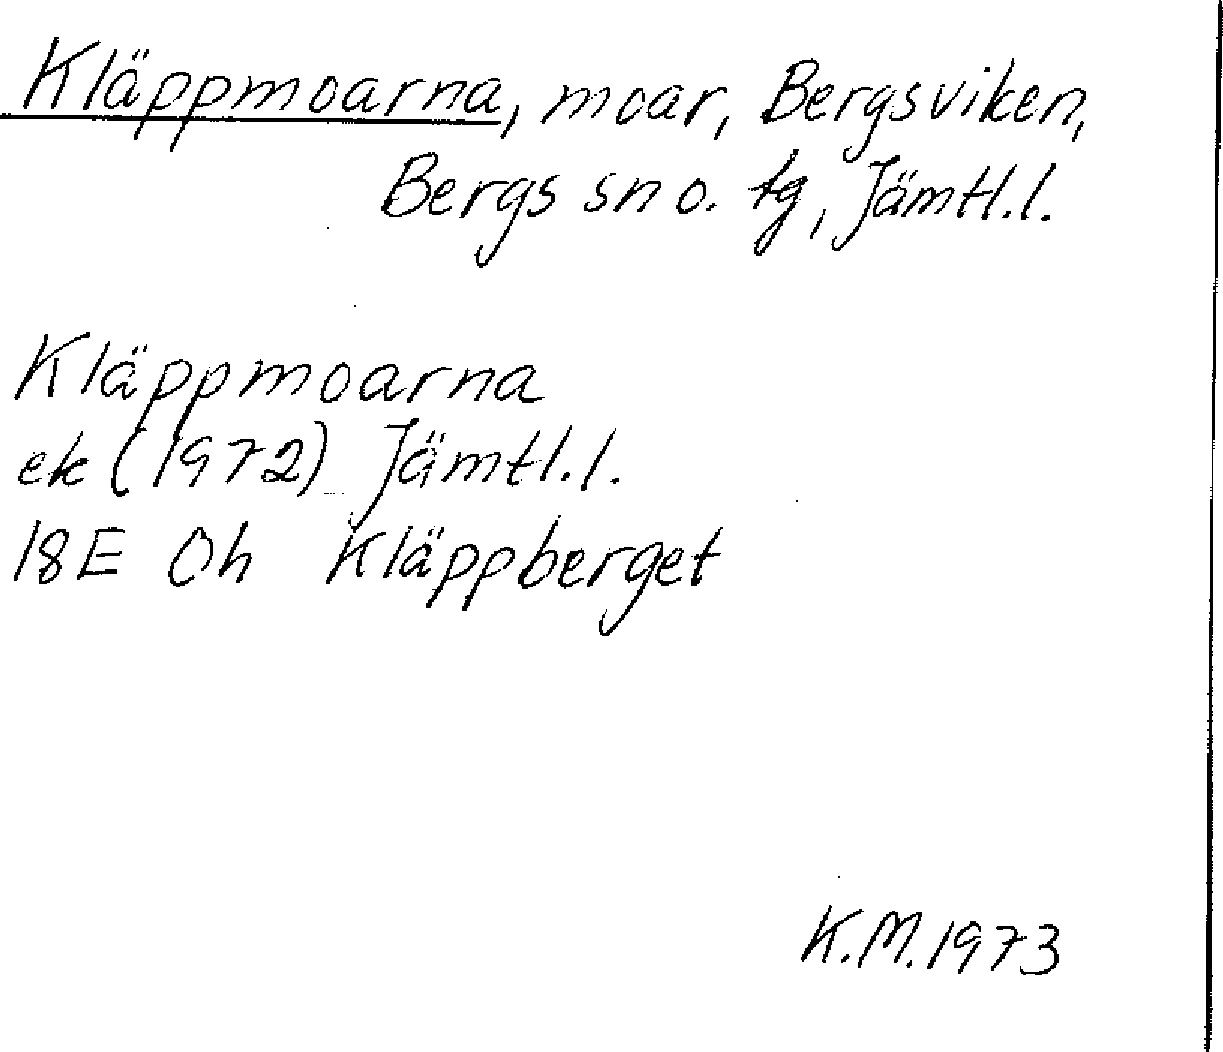 Kläppmoarna, moar, Bergsviken,
Bergs sn o. tg, Jämtl.l.
Kläppmoarna
ek (1972) Jämtl.l.
18E 0h Kläppberget
K.M. 1973